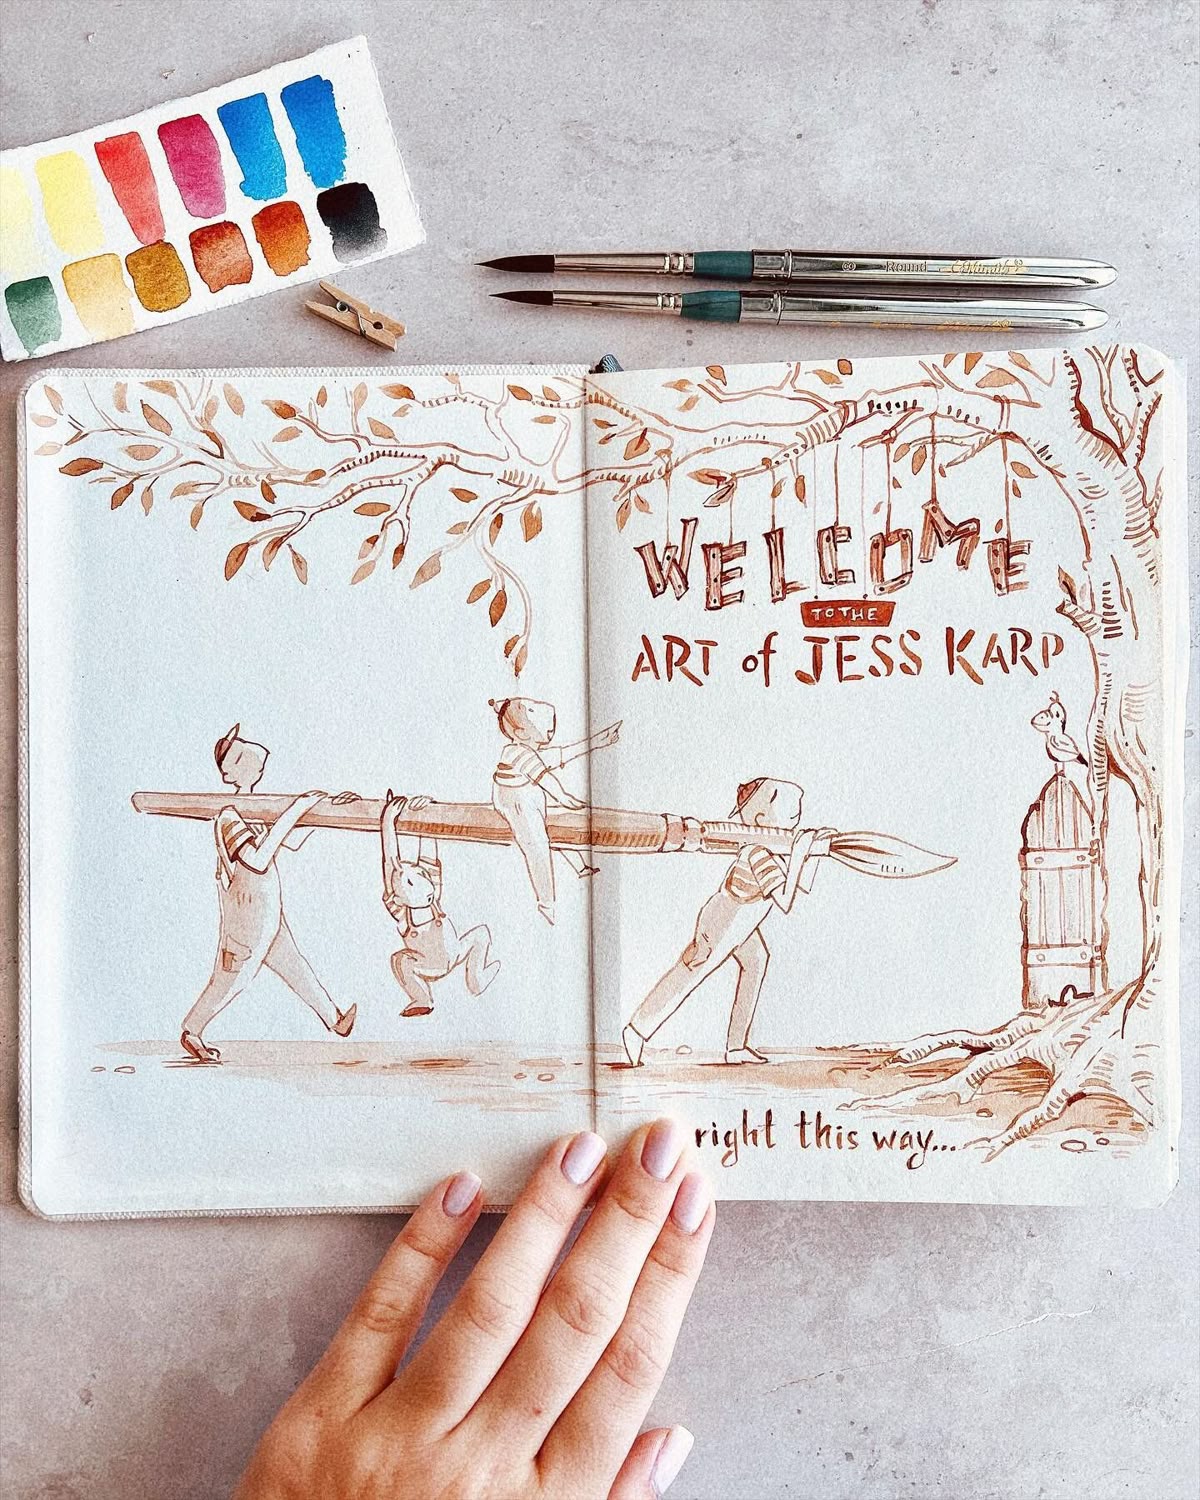 8 Round
WELCOME
TO THE
ART of JESS KARP
right this way...